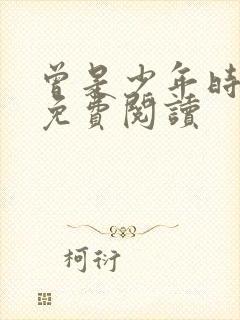 曾是少年時
免費閱讀
柯衍